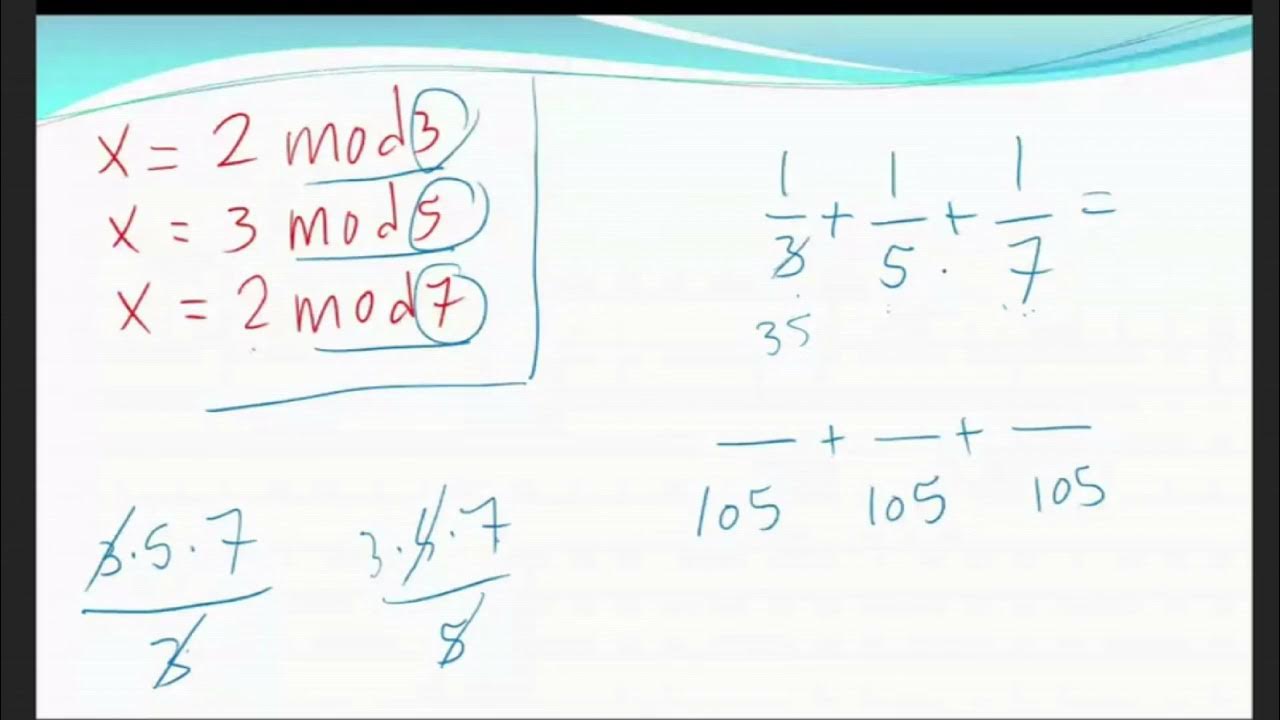 x = 2 mod 3
x = 3 mod 5
x = 2 mod 7
1/3 + 1/5 + 1/7 =
35
— + — + —
105 105 105
3·5·7 3·5·7
3 5